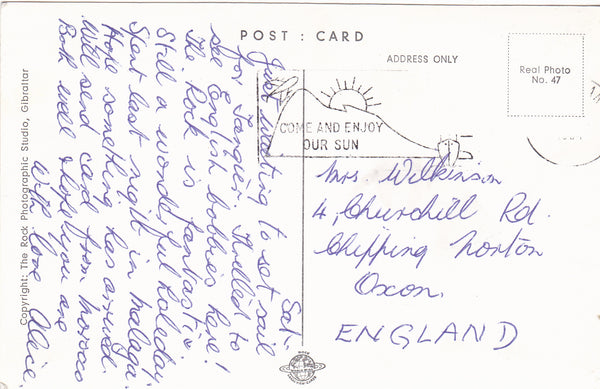 POST : CARD
ADDRESS ONLY
Real Photo
No. 47
COME AND ENJOY
OUR SUN
Sat-
Just waiting to set sail
for Tangier. Thrilled to
see English bobbies here!
The Rock is fantastic.
Still a wonderful holiday
Spent last night in Malaga.
Hope something has arrived.
Will send card from Morocco
Both well & hope you are
With love Alice.
Mrs. Wilkinson
4, Churchill Rd.
Chipping Norton
Oxon.
ENGLAND
Copyright: The Rock Photographic Studio, Gibraltar